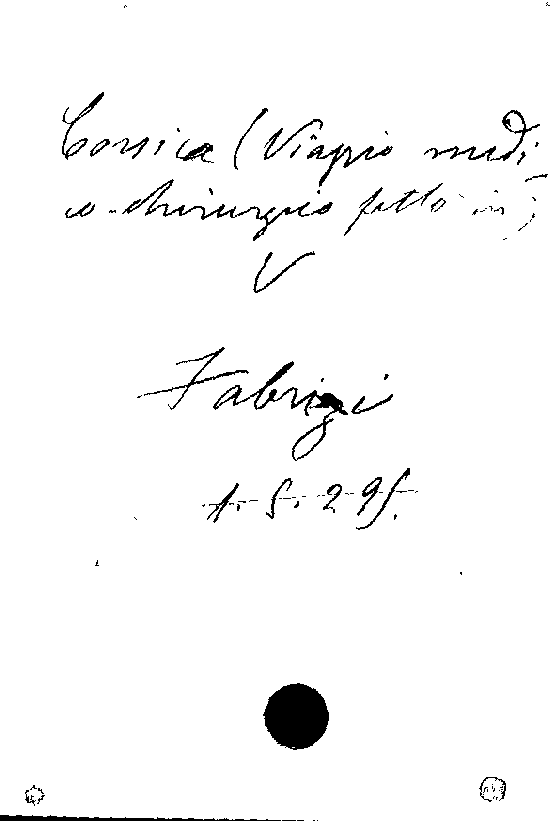 Corsica (Viaggio medi
co-chirurgico fatto in)
V
Fabrizi
1. 5. 295.